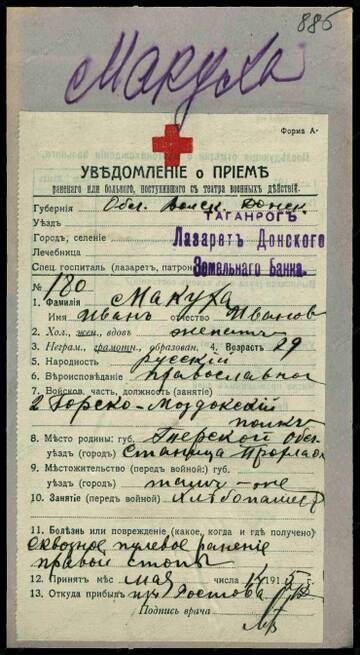 886
Макуха
Форма А
УВѢДОМЛЕНІЕ о ПРІЕМѢ
раненаго или больного, поступившаго съ театра военныхъ дѣйствій.
Губернія Обл. Войск. Донск.
Уѣздъ ТАГАНРОГЪ
Городъ, селеніе Лазаретъ Донского
Лечебница
Спец. госпиталь (лазаретъ, патрон Земельнаго Банка.
№ 180
1. Фамилія Макуха
Имя Иванъ отчество Иванов
2. Хол., жен., вдовъ женатъ
3. Неграм., грамотн., образован. 4. Возрастъ 29
5. Народность русскій
6. Вѣроисповѣданіе православное
7. Войсков. часть, должность (занятіе)
2 Горско-Моздокскій
полкъ
8. Мѣсто родины: губ. Терской Обл.
уѣздъ (городъ) станица Прохлад
9. Мѣстожительство (передъ войной): губ.
уѣздъ (городъ) тамъ-же
10. Занятіе (передъ войной) Хлѣбопашец
11. Болѣзнь или поврежденіе (какое, когда и гдѣ получено)
сквозное пулевое раненіе
правой стопы
12. Принятъ мѣс мая числа 14 1915 г.
13. Откуда прибылъ из Ростова
Подпись врача